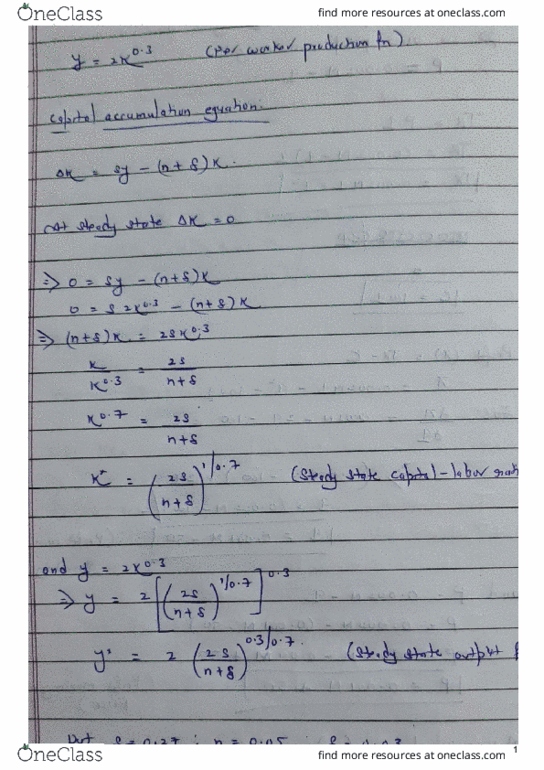 OneClass
find more resources at oneclass.com
y = 2K^0.3 (Per worker production fn)
Capital accumulation equation:
ΔK = sy - (n+δ)K.
At steady state ΔK = 0
=> 0 = sy - (n+δ)K
0 = s 2K^0.3 - (n+δ)K
=> (n+δ)K = 2sK^0.3
K/K^0.3 = 2s/(n+δ)
K^0.7 = 2s/(n+δ)
K* = (2s/(n+δ))^1/0.7 (steady state capital-labor
and y = 2K^0.3
=> y = 2[(2s/(n+δ))^1/0.7]^0.3
y* = 2 (2s/(n+δ))^0.3/0.7. (steady state output
Put s = 0.27 ; n = 0.05 ;
OneClass
find more resources at oneclass.com
1